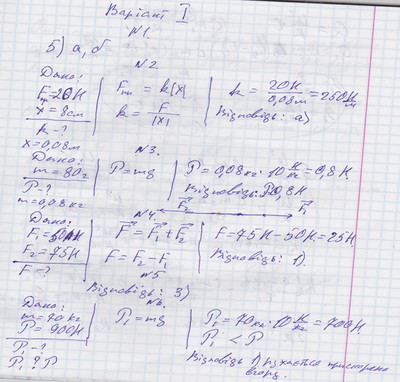 Варіант I
№1.
5) а, б
№2.
Дано:
Fпр=20Н
x = 8см
k - ?
x=0,08м
Fпр = k|x|
k = F/|x|
k = 20Н/0,08м = 250 Н/м
Відповідь: а)
№3.
Дано:
m = 80г
P - ?
m=0,08кг
P = mg
P = 0,08кг · 10 Н/кг = 0,8Н.
Відповідь: 0,8Н
№4.
Дано:
F₁ = 50Н
F₂ = 75Н
F - ?
F⃗ = F⃗₁ + F⃗₂
F = F₂ - F₁
F⃗₂ F⃗₁
F = 75Н - 50Н = 25Н.
Відповідь: 1).
№5
Відповідь: 3)
№6.
Дано:
m = 70кг
P = 900Н
P₁ - ?
P₁ ? P
P₁ = mg
P₁ = 70кг · 10 Н/кг = 700Н.
P₁ < P
Відповідь: рухається прискорено
вгору.